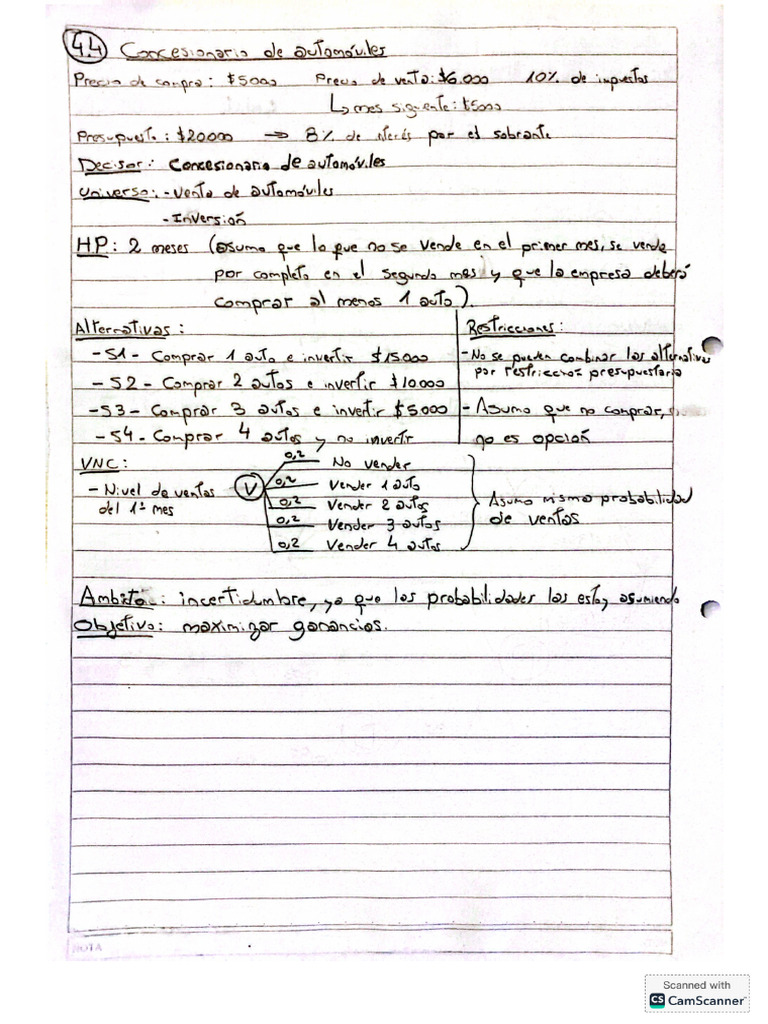 4.4 Concesionario de automóviles
Precio de compra: $5000 Precio de venta: $6.000 10% de impuestos
↳ mes siguiente: $5000
Presupuesto: $20000 → 8% de interés por el sobrante
Decisor: Concesionario de automóviles
Universo: - Venta de automóviles
- Inversión
HP: 2 meses (asumo que lo que no se vende en el primer mes, se vende
por completo en el segundo mes y que la empresa deberá
comprar al menos 1 auto).
Alternativas:
- S1 - Comprar 1 auto e invertir $15000
- S2 - Comprar 2 autos e invertir $10.000
- S3 - Comprar 3 autos e invertir $5.000
- S4 - Comprar 4 autos y no invertir
Restricciones:
- No se pueden combinar las alternativas
por restricción presupuestaria
- Asumo que no comprar,
no es opción
VNC:
- Nivel de ventas
del 1° mes
V
0,2 No vender
0,2 Vender 1 auto
0,2 Vender 2 autos
0,2 Vender 3 autos
0,2 Vender 4 autos
Asumo misma probabilidad
de ventas
Ambito: incertidumbre, ya que las probabilidades las estoy asumiendo
Objetivo: maximizar ganancias.
NOTA
Scanned with
CS CamScanner